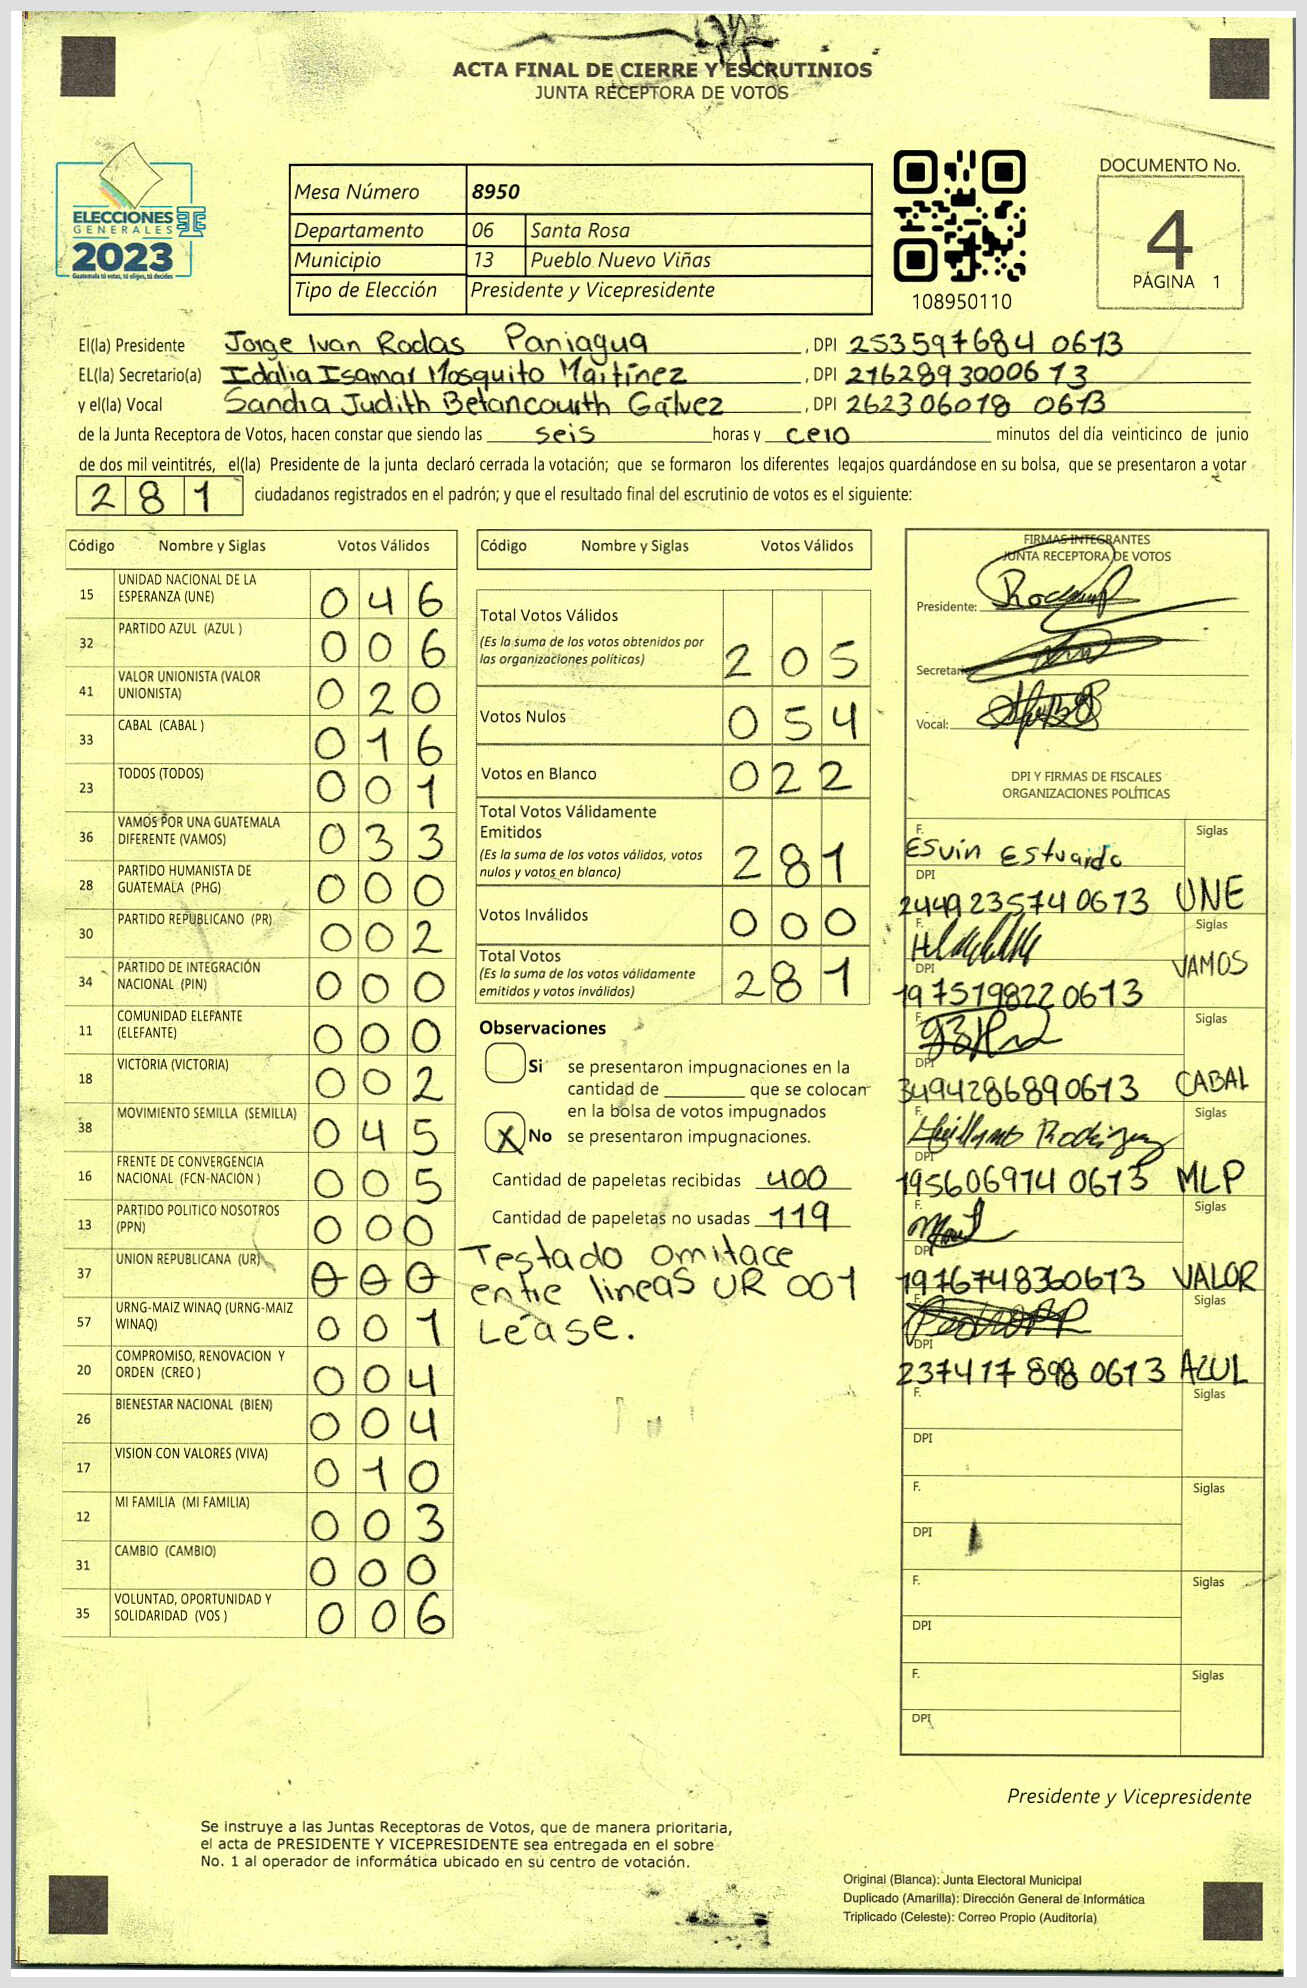 ACTA FINAL DE CIERRE Y ESCRUTINIOS
JUNTA RECEPTORA DE VOTOS
ELECCIONES
GENERALES
2023
Guatemala tú votas, tú eliges, tú decides
Mesa Número 8950
Departamento 06 Santa Rosa
Municipio 13 Pueblo Nuevo Viñas
Tipo de Elección Presidente y Vicepresidente
108950110
DOCUMENTO No.
4
PÁGINA 1
El(la) Presidente Jorge Ivan Rodas Paniagua , DPI 253597684 0613
EL(la) Secretario(a) Idalia Isamar Mosquito Maitínez , DPI 2162893000613
y el(la) Vocal Sandra Judith Betancourth Gálvez , DPI 262306018 0613
de la Junta Receptora de Votos, hacen constar que siendo las seis horas y cero minutos del día veinticinco de junio
de dos mil veintitrés, el(la) Presidente de la junta declaró cerrada la votación; que se formaron los diferentes legajos guardándose en su bolsa, que se presentaron a votar
281 ciudadanos registrados en el padrón; y que el resultado final del escrutinio de votos es el siguiente:
Código Nombre y Siglas Votos Válidos
15 UNIDAD NACIONAL DE LA ESPERANZA (UNE) 046
32 PARTIDO AZUL (AZUL ) 006
41 VALOR UNIONISTA (VALOR UNIONISTA) 020
33 CABAL (CABAL ) 016
23 TODOS (TODOS) 001
36 VAMOS POR UNA GUATEMALA DIFERENTE (VAMOS) 033
28 PARTIDO HUMANISTA DE GUATEMALA (PHG) 000
30 PARTIDO REPUBLICANO (PR) 002
34 PARTIDO DE INTEGRACIÓN NACIONAL (PIN) 000
11 COMUNIDAD ELEFANTE (ELEFANTE) 000
18 VICTORIA (VICTORIA) 002
38 MOVIMIENTO SEMILLA (SEMILLA) 045
16 FRENTE DE CONVERGENCIA NACIONAL (FCN-NACION ) 005
13 PARTIDO POLITICO NOSOTROS (PPN) 000
37 UNION REPUBLICANA (UR) 000
57 URNG-MAIZ WINAQ (URNG-MAIZ WINAQ) 001
20 COMPROMISO, RENOVACION Y ORDEN (CREO ) 004
26 BIENESTAR NACIONAL (BIEN) 004
17 VISION CON VALORES (VIVA) 010
12 MI FAMILIA (MI FAMILIA) 003
31 CAMBIO (CAMBIO) 000
35 VOLUNTAD, OPORTUNIDAD Y SOLIDARIDAD (VOS ) 006
Código Nombre y Siglas Votos Válidos
Total Votos Válidos
(Es la suma de los votos obtenidos por
las organizaciones políticas) 205
Votos Nulos 054
Votos en Blanco 022
Total Votos Válidamente
Emitidos
(Es la suma de los votos válidos, votos
nulos y votos en blanco) 281
Votos Inválidos 000
Total Votos
(Es la suma de los votos válidamente
emitidos y votos inválidos) 281
Observaciones
Si se presentaron impugnaciones en la
cantidad de ________ que se colocan
en la bolsa de votos impugnados
X No se presentaron impugnaciones.
Cantidad de papeletas recibidas 400
Cantidad de papeletas no usadas 119
Testado omitace
entre lineas UR 001
Léase.
FIRMAS INTEGRANTES
JUNTA RECEPTORA DE VOTOS
Presidente:
Secretari
Vocal:
DPI Y FIRMAS DE FISCALES
ORGANIZACIONES POLÍTICAS
F. Esvin Estuardo Siglas
DPI 2449235740613 UNE
F. Siglas
DPI 1975198220613 VAMOS
F. Siglas
DPI 3494286890613 CABAL
F. Guillermo Rodriguez Siglas
DPI 1956069740613 MLP
F. Siglas
DPI 1976748360613 VALOR
F. Siglas
DPI 237417898 0613 AZUL
F. Siglas
DPI
F. Siglas
DPI
F. Siglas
DPI
F. Siglas
DPI
Presidente y Vicepresidente
Se instruye a las Juntas Receptoras de Votos, que de manera prioritaria,
el acta de PRESIDENTE Y VICEPRESIDENTE sea entregada en el sobre
No. 1 al operador de informática ubicado en su centro de votación.
Original (Blanca): Junta Electoral Municipal
Duplicado (Amarilla): Dirección General de Informática
Triplicado (Celeste): Correo Propio (Auditoría)